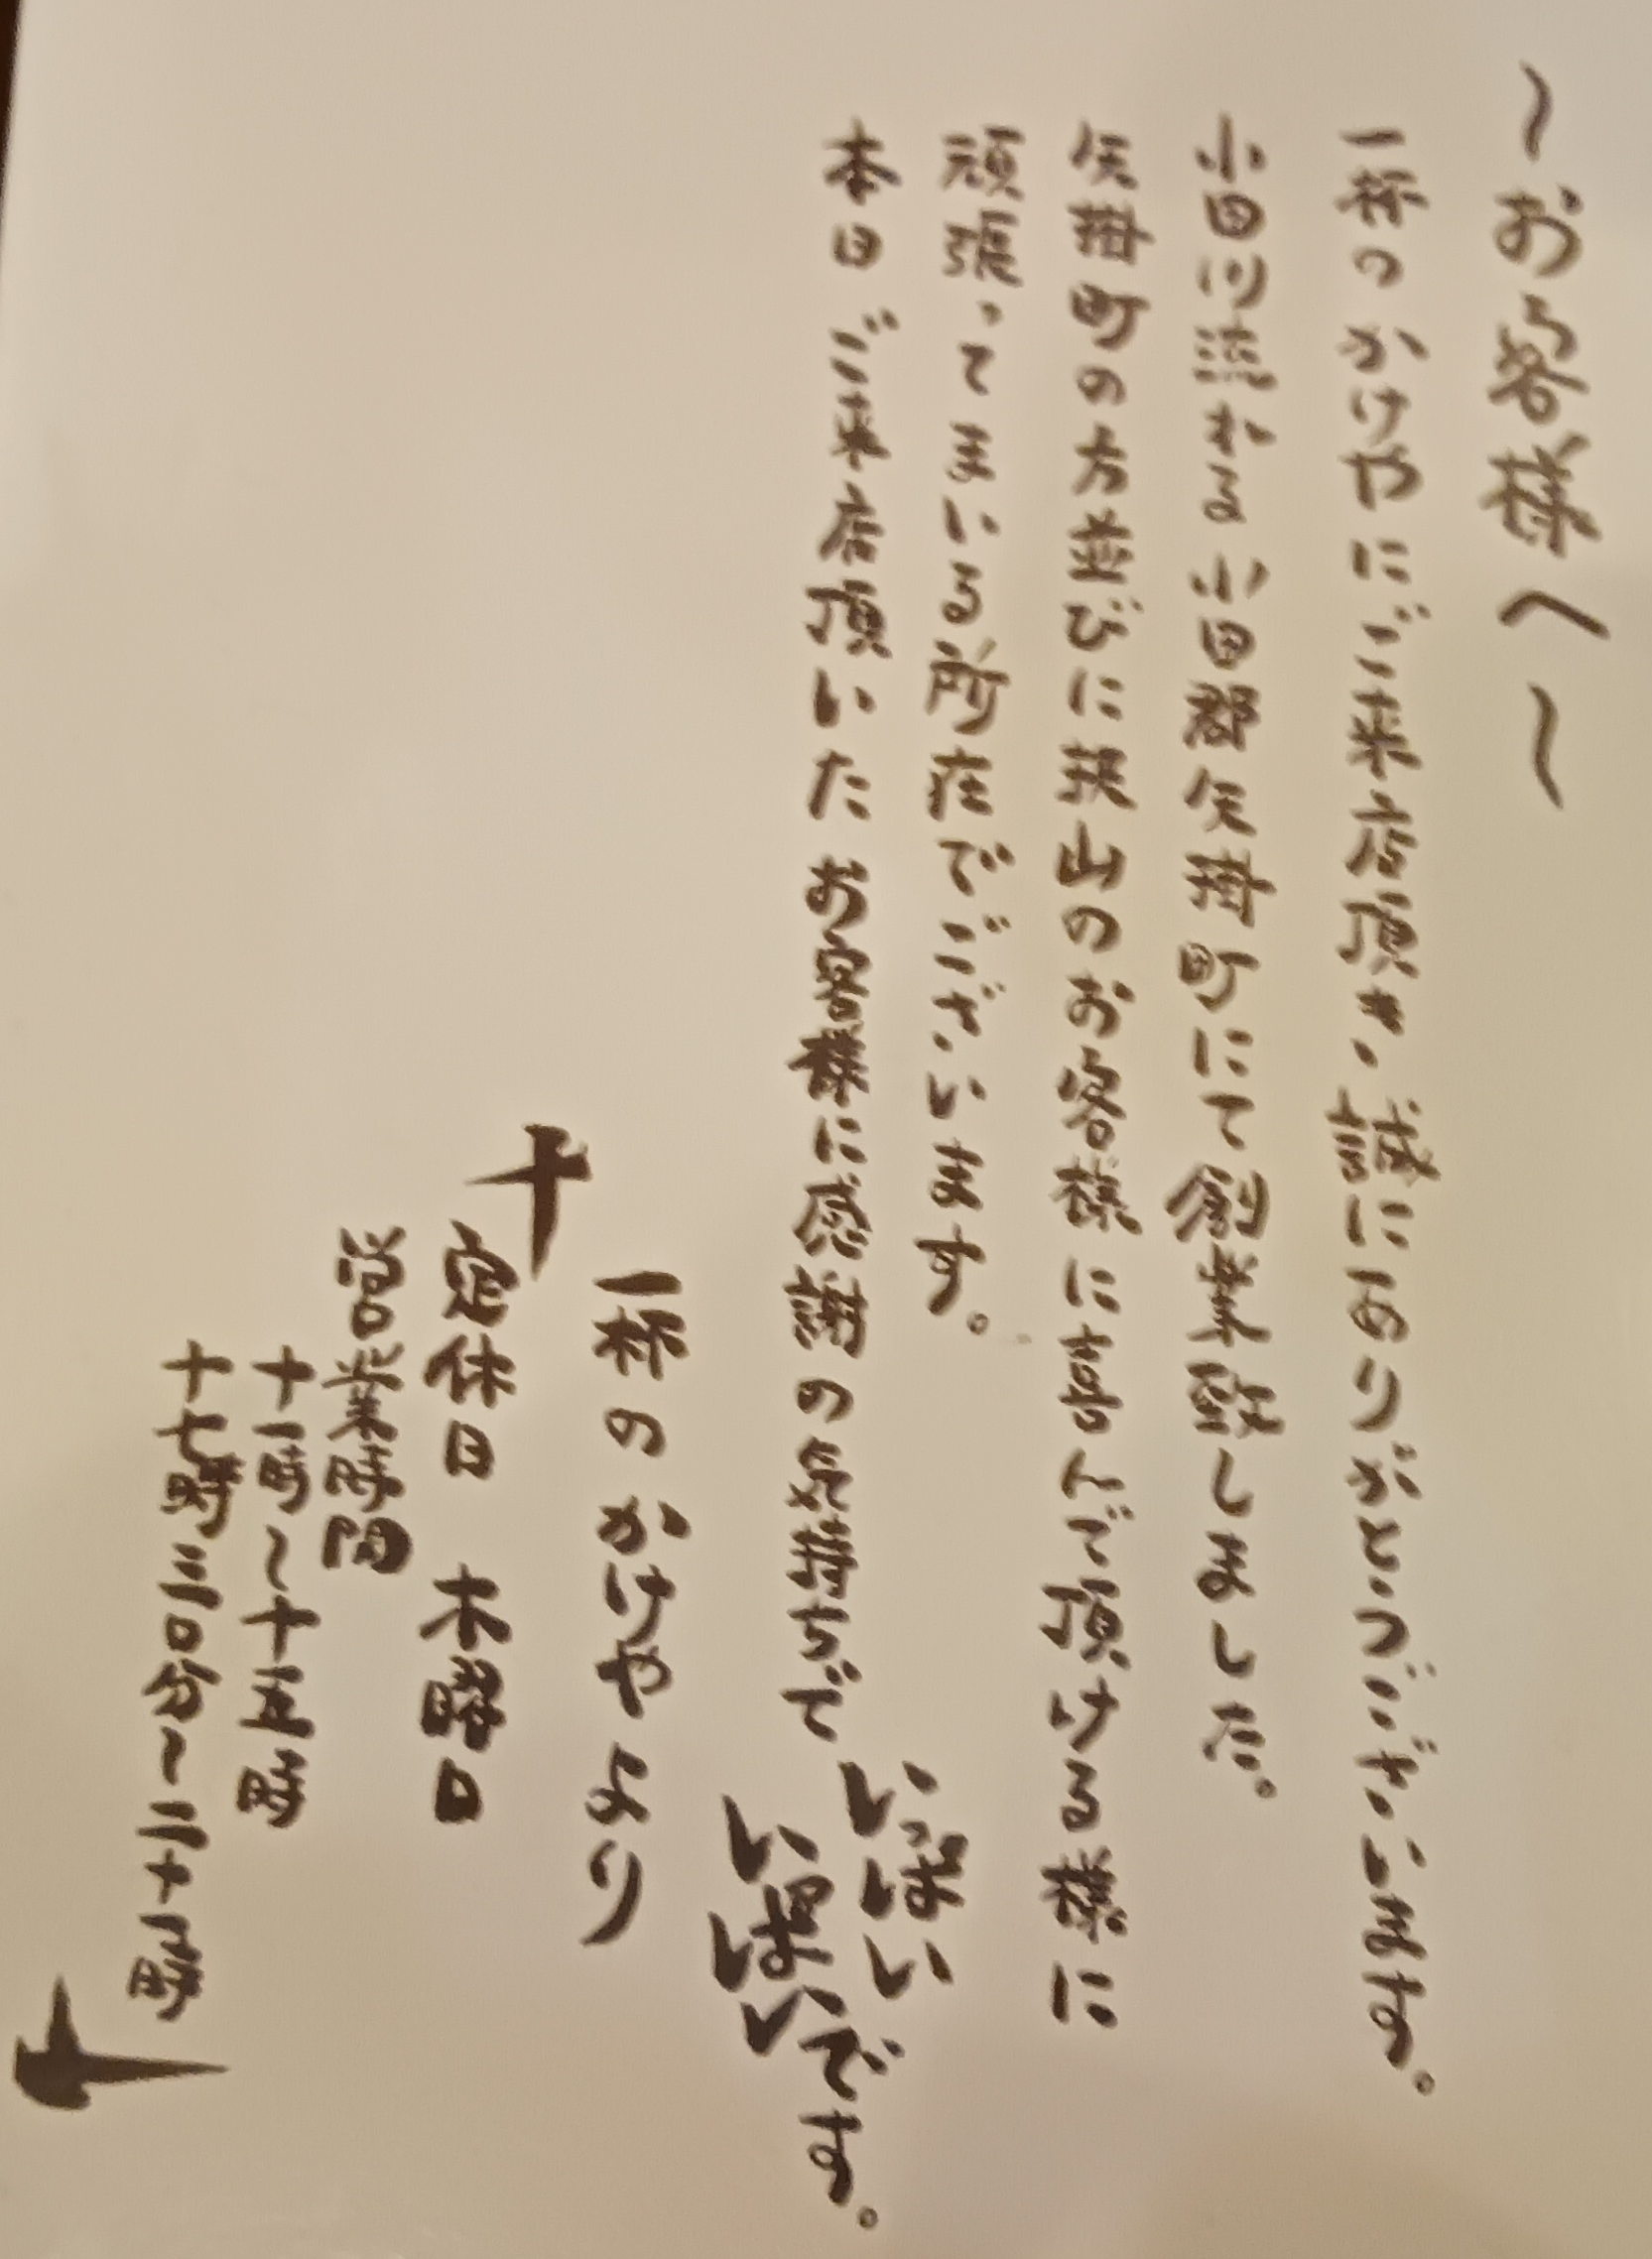 ～お客様へ～
一杯のかけやにご来店頂き、誠にありがとうございます。
小田川流れる小田郡矢掛町にて創業致しました。
矢掛町の方並びに狭山のお客様に喜んで頂ける様に
頑張ってまいる所存でございます。
本日ご来店頂いたお客様に感謝の気持ちで
いっぱい
いっぱいです。
一杯のかけやより
定休日 木曜日
営業時間
十一時～十五時
十七時三〇分～二十一時